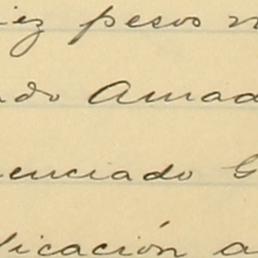 iez pesos m
ndo Amad
enciado G
licación a